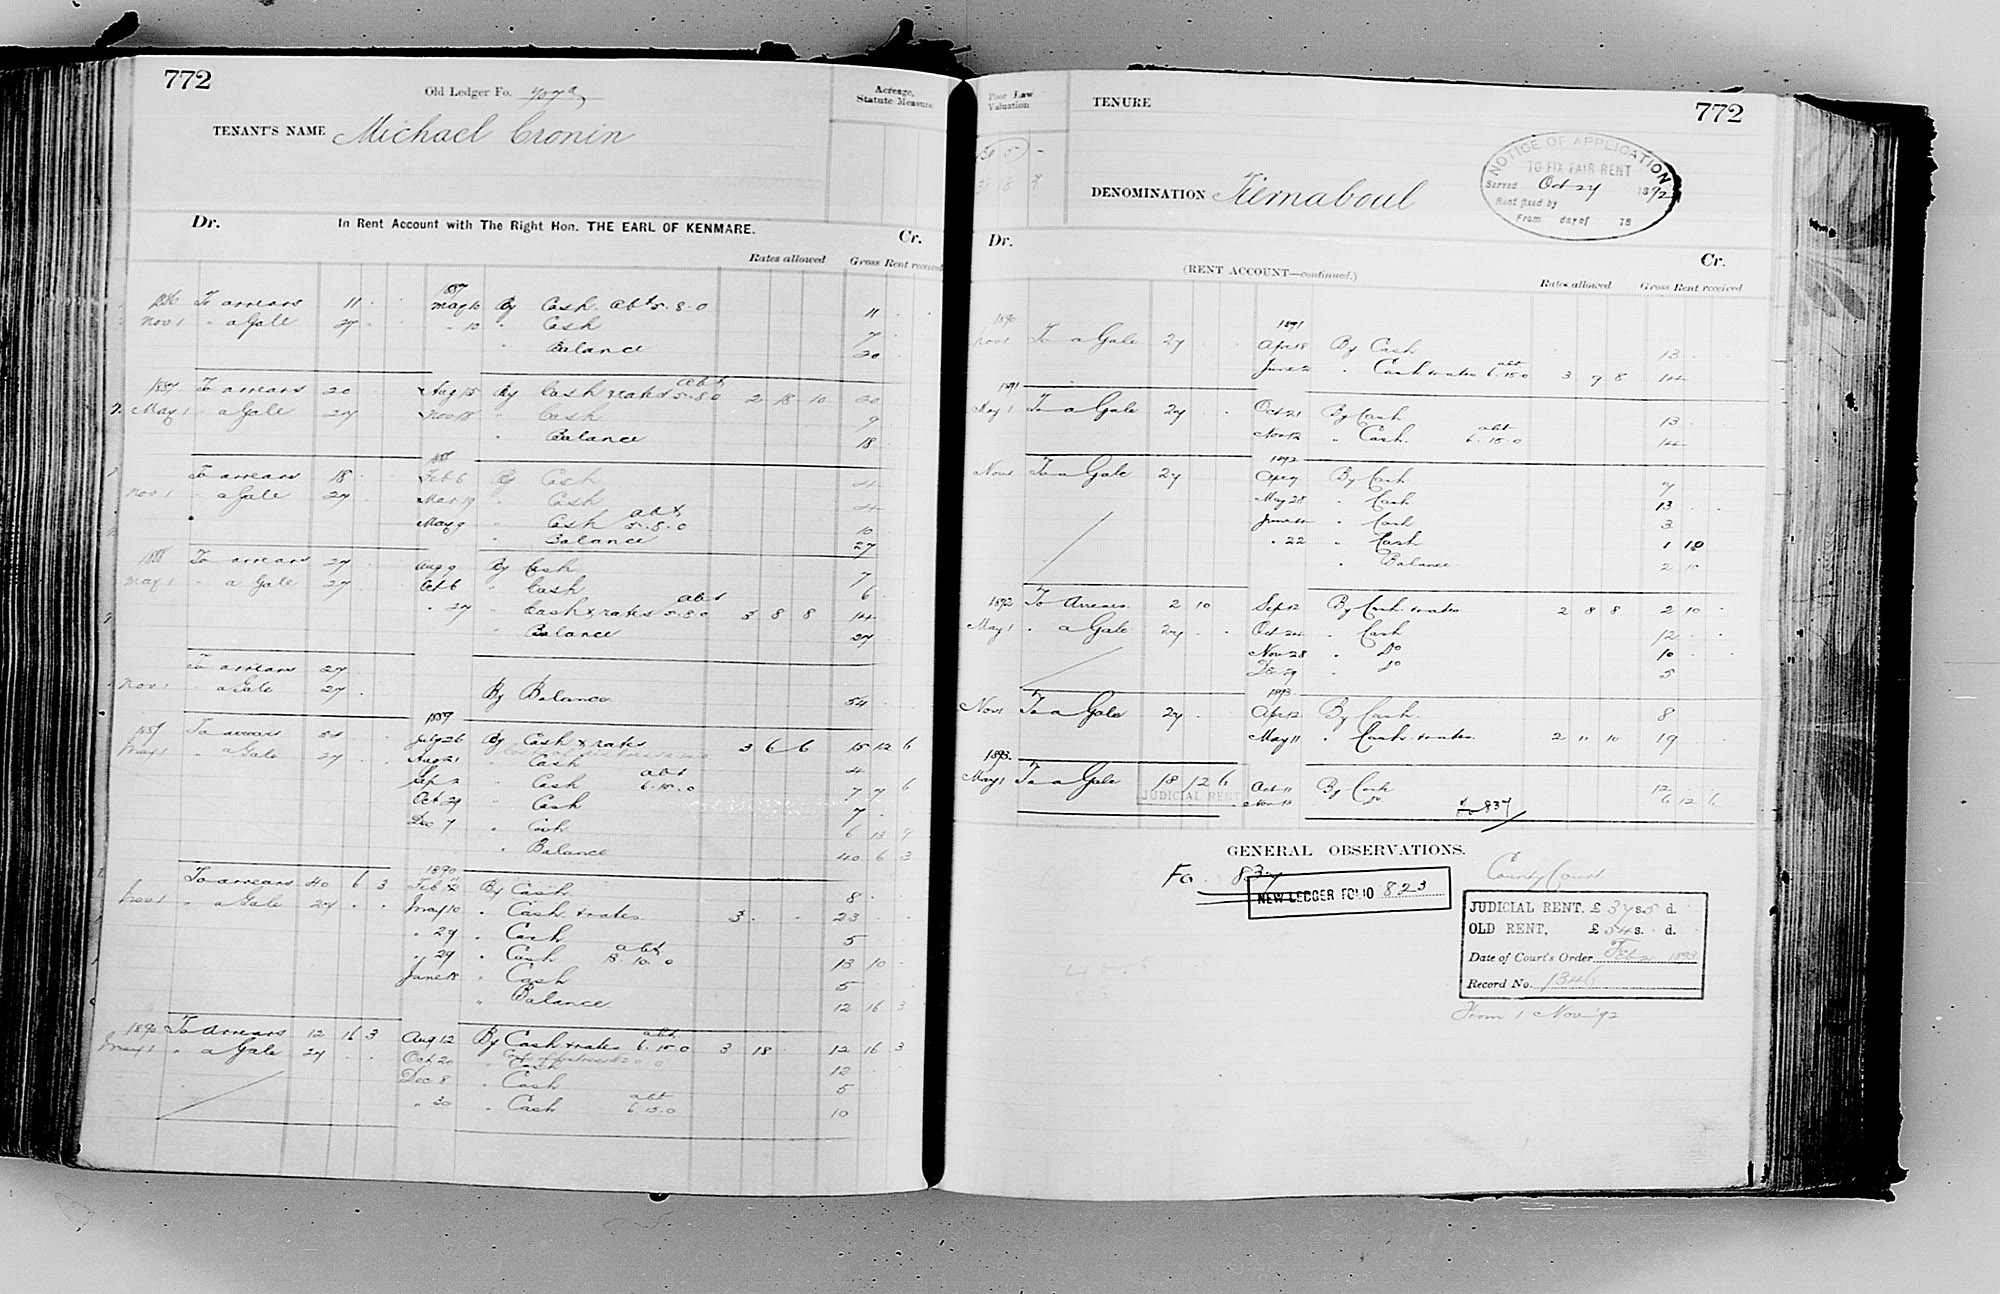 772
Old Ledger Fo.
Acreage, Statute Measure
TENANT'S NAME Michael Cronin
Dr. In Rent Account with The Right Hon. THE EARL OF KENMARE. Cr.
Rates allowed Gross Rent received
1887
1886 To arrears 11 May 10 By Cash abt 5.8.0 11
Nov 1 " a Gale 27 " 10 " Cash 7
" Balance 20
1887 To arrears 20 Aug 15 By Cash & rates abt 5.8.0 2 18 10 20
May 1 " a Gale 27 Nov 18 " Cash 9
" Balance 18
1888
To arrears 18 Feb 6 By Cash 4
Nov 1 " a Gale 27 Mar 19 " Cash 4
May 9 " Cash abt 5.8.0 10
" Balance 27
1888 To arrears 27 Aug 9 By Cash 7
May 1 " a Gale 27 Oct 6 " Cash 6
" 27 " Cash & rates abt 5.8.0 3 8 8 14
" Balance 27
To arrears 27
Nov 1 " a Gale 27 By Balance 54
1889
1889 To arrears 54 July 26 By Cash & rates 3 6 6 15 12 6
May 1 " a Gale 27 Aug 21 " Cash 4
Sep 2 " Cash abt 6.15.0 7 7 6
Oct 29 " Cash 7
Dec 7 " Cash 6 13 9
" Balance 40 6 3
1890
To arrears 40 6 3 Feb 12 By Cash 8
Nov 1 " a Gale 27 May 10 " Cash & rates 3 23
" 29 " Cash 5
" 29 " Cash abt 13.10.0 13 10
June 18 " Cash 5
" Balance 12 16 3
1890 To arrears 12 16 3 Aug 12 By Cash & rates abt 6.15.0 3 18 12 16 3
May 1 " a Gale 27 Oct 20 " Cash 12
Dec 8 " Cash 5
" 30 " Cash abt 6.15.0 10
Poor Law Valuation
TENURE
772
NOTICE OF APPLICATION
TO FIX FAIR RENT
Served Oct 27 1892
Rent fixed by
From day of 18
DENOMINATION Tiernaboul
Dr. Cr.
(RENT ACCOUNT—continued.)
Rates allowed Gross Rent received
1890 1891
Nov 1 To a Gale 27 Apr 18 By Cash 13
June 2 " Cash & rates abt 6.15.0 3 9 8 14
1891
May 1 To a Gale 27 Oct 21 By Cash 13
Nov 12 " Cash abt 6.15.0 14
1892
Nov 1 To a Gale 27 Apr 7 By Cash 7
May 28 " Cash 13
June " Cash 3
" 22 " Cash 1 10
" Balance 2 10
1892 To Arrears 2 10 Sep 12 By Cash & rates 2 8 8 2 10
May 1 " a Gale 27 Oct 24 " Cash 12
Nov 28 " Do 10
Dec 29 " Do 5
1893
Nov 1 To a Gale 27 Apr 12 By Cash 8
May 11 " Cash & rates 2 11 10 19
1893
May 1 To a Gale 18 12 6 Oct 11 By Cash 12
JUDICIAL RENT Nov 13 Do 6 12 6
Fo 837
GENERAL OBSERVATIONS.
Fo. 837
NEW LEDGER FOLIO 823
County Court
JUDICIAL RENT, £ 37 s. 5 d.
OLD RENT, £ 54 s. d.
Date of Court's Order Feb 1893
Record No. 1346
From 1 Nov '92